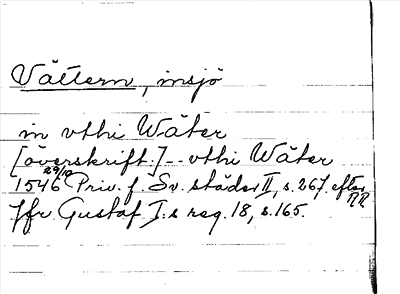 Vättern, insjö
in vthi Wäter
[överskrift.] -- vthi Wäter
1546 29/10 Priv. f. Sv. städer II, s. 267. efter RR.
Jfr Gustaf I:s reg. 18, s. 165.